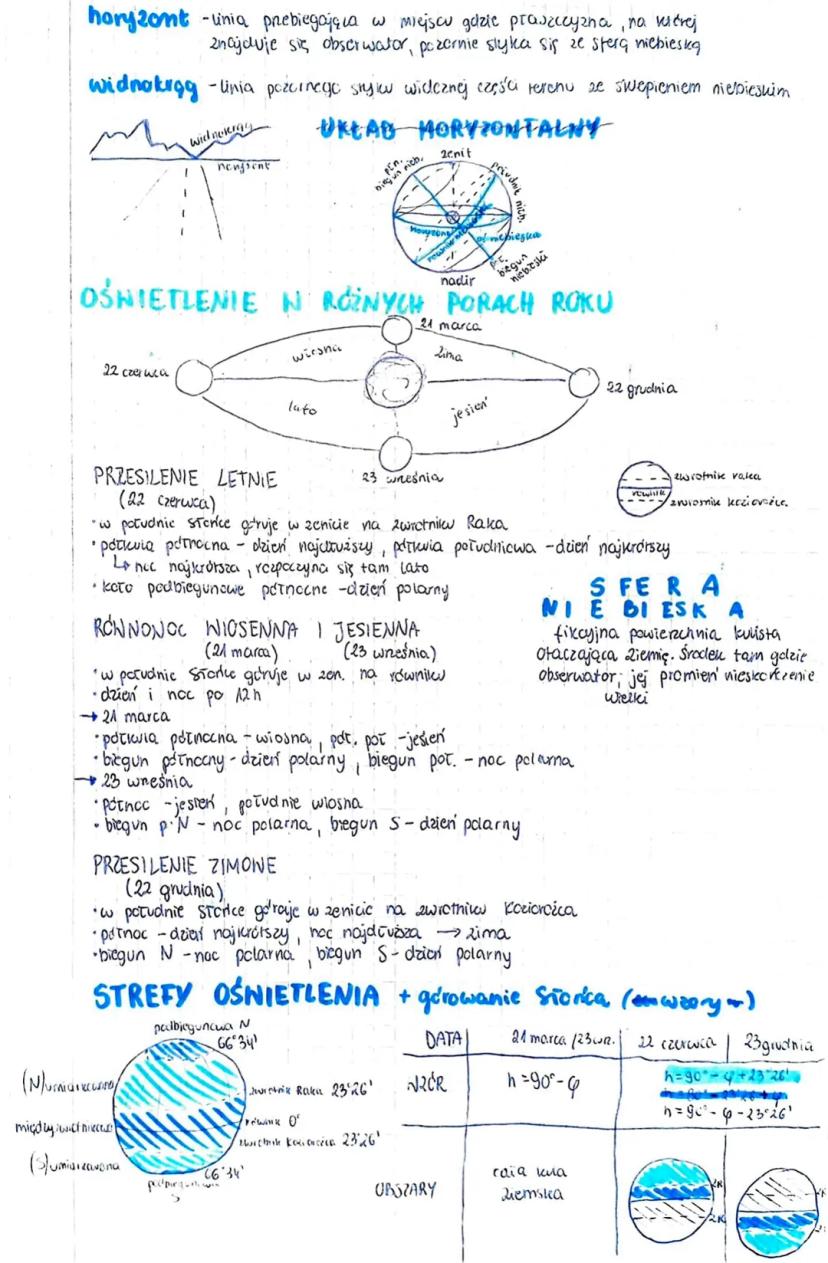 horyzont - linia przebiegająca w miejscu gdzie płaszczyzna, na której
znajduje się obserwator, pozornie styka się ze sferą niebieską
widnokrąg - linia pozornego styku widocznej części terenu ze sklepieniem niebieskim
widnokrąg
horyzont
UKŁAD HORYZONTALNY
zenit
płn. biegun nieb.
południk nieb.
horyzont
równik niebieski
oś niebieska
płd. biegun niebieski
nadir
OŚWIETLENIE W RÓŻNYCH PORACH ROKU
21 marca
wiosna
zima
22 czerwca
22 grudnia
lato
jesień
23 września
PRZESILENIE LETNIE
(22 czerwca)
zwrotnik raka
równik
zwrotnik koziorożca
• w południe słońce góruje w zenicie na zwrotniku Raka
• półkula północna - dzień najdłuższy, półkula południowa - dzień najkrótszy
↳ noc najkrótsza, rozpoczyna się tam lato
• koło podbiegunowe północne - dzień polarny
SFERA
NIEBIESKA
fikcyjna powierzchnia kulista
otaczająca ziemię. Środek tam gdzie
obserwator, jej promień nieskończenie
wielki
RÓWNONOC WIOSENNA I JESIENNA
(21 marca) (23 września)
• w południe słońce góruje w zen. na równiku
• dzień i noc po 12 h
→ 21 marca
• półkula północna - wiosna, półk. poł - jesień
• biegun północny - dzień polarny, biegun poł. - noc polarna
→ 23 września
• północ - jesień, południe wiosna
• biegun p. N - noc polarna, biegun S - dzień polarny
PRZESILENIE ZIMOWE
(22 grudnia)
• w południe słońce góruje w zenicie na zwrotniku koziorożca
• północ - dzień najkrótszy, noc najdłuższa → zima
• biegun N - noc polarna, biegun S - dzień polarny
STREFY OŚWIETLENIA + górowanie Słońca (wzory)
podbiegunowa N
66°34'
(N) umiarkowana
zwrotnik Raka 23°26'
międzyzwrotnikowa
równik 0°
zwrotnik koziorożca 23°26'
(S) umiarkowana
66°34'
podbiegunowa
S
DATA 21 marca /23 wrz. 22 czerwca 23 grudnia
WZÓR h = 90° - φ h = 90° - φ + 23°26'
h = 90° - φ - 23°26'
OBSZARY cała kula
ziemska
ZR
ZK